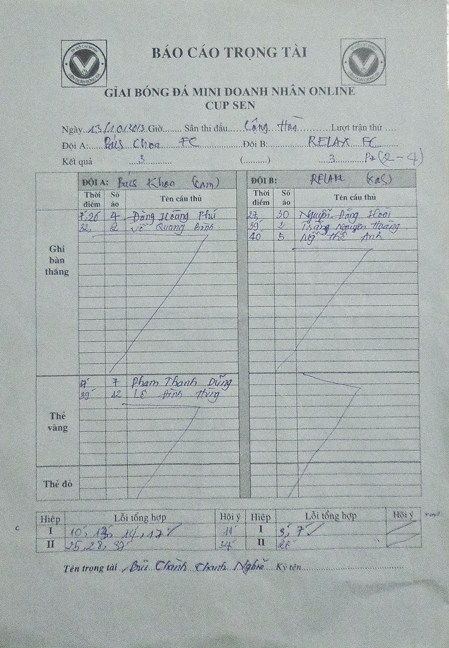 BÁO CÁO TRỌNG TÀI
GIẢI BÓNG ĐÁ MINI DOANH NHÂN ONLINE
CUP SEN
Ngày 13/10/2013 Giờ........ Sân thi đấu Cộng Hòa Lượt trận thứ ....
Đội A: FC Đội B: RELAX FC
Kết quả 3 (..........) 3 (2-4)
ĐỘI A: ĐỘI B: RELAX
Thời điểm Số áo Tên cầu thủ Thời điểm Số áo Tên cầu thủ
Ghi bàn thắng
4 Đặng Hoàng Phú 23 30 Nguyễn Đông
Võ Quang 39 2 Nguyên Hoàng
40 5 Ngô Thế Anh
Thẻ vàng
7 Phạm Thanh Dũng
39 12 Lê Đình
Thẻ đỏ
Hiệp Lỗi tổng hợp Hội ý Hiệp Lỗi tổng hợp Hội ý
I 10, 13, 14, 17 11 I 3, 7
II 25, 28, 37 II
Tên trọng tài Bùi Chánh Thanh Nghĩa Ký tên